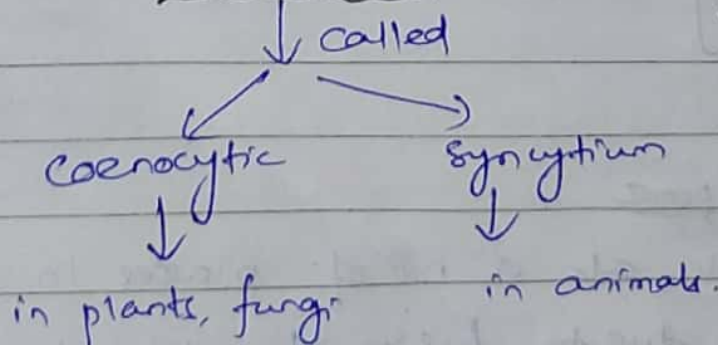 called
coenocytic syncytium
in plants, fungi in animals.